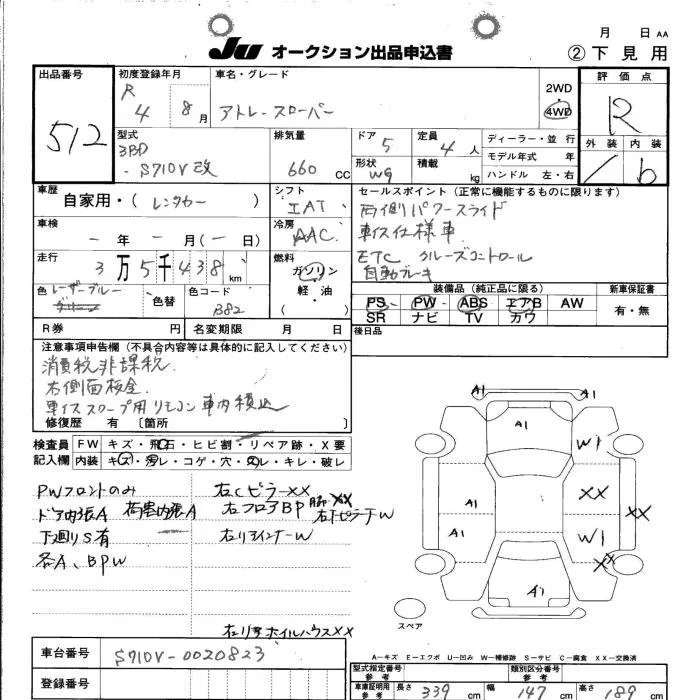 月 日 AA
JU オークション出品申込書 ②下見用
出品番号 初度登録年月 車名・グレード 2WD 4WD 評価点
512 R 4 8月 アトレースローパー R
型式 排気量 ドア 定員 ディーラー・並行 外装 内装
3BD-S710V改 660 CC 5 4人 モデル年式 年
形状 積載 ハンドル 左・右
wg kg / b
車歴 自家用・(レンタカー) シフト IAT セールスポイント(正常に機能するものに限ります)
両側パワースライド
車検 - 年 - 月(- 日) 冷房 AAC 車イス仕様車
走行 3万5千438km 燃料 ガソリン 軽・油 ETC クルーズコントロール
自動ブレーキ
色 レーザーブルー 色替 色コード B82 装備品(純正品に限る) 新車保証書
PS PW ABS エアB AW 有・無
SR ナビ TV カワ
R券 円 名変期限 月 日 後日品
注意事項申告欄(不具合内容等は具体的に記入してください)
消費税非課税
右側面板金
車イススロープ用リモコン車内積込
修復歴 有 〔箇所
検査員 FW キズ・飛石・ヒビ割・リペア跡・X要
記入欄 内装 キズ・汚レ・コゲ・穴・スレ・キレ・破レ
PWフロントのみ 右CピラーXX
ドア内張A 荷室内張A 右フロアBP XX
下廻りS有 右リアインナーW
各A、BPW
右リアホイルハウスXX
A1 A1
A1 W1
A1 XX
A1 W1 XX
XX
A1
スペア
A－キズ E－エクボ U－凹み W－補修跡 S－サビ C－腐食 XX－交換済
車台番号 S710V-0020823
登録番号
型式指定番号 参考 類別区分番号 参考
車庫証明用 参考 長さ 339 cm 幅 147 cm 高さ 189 cm